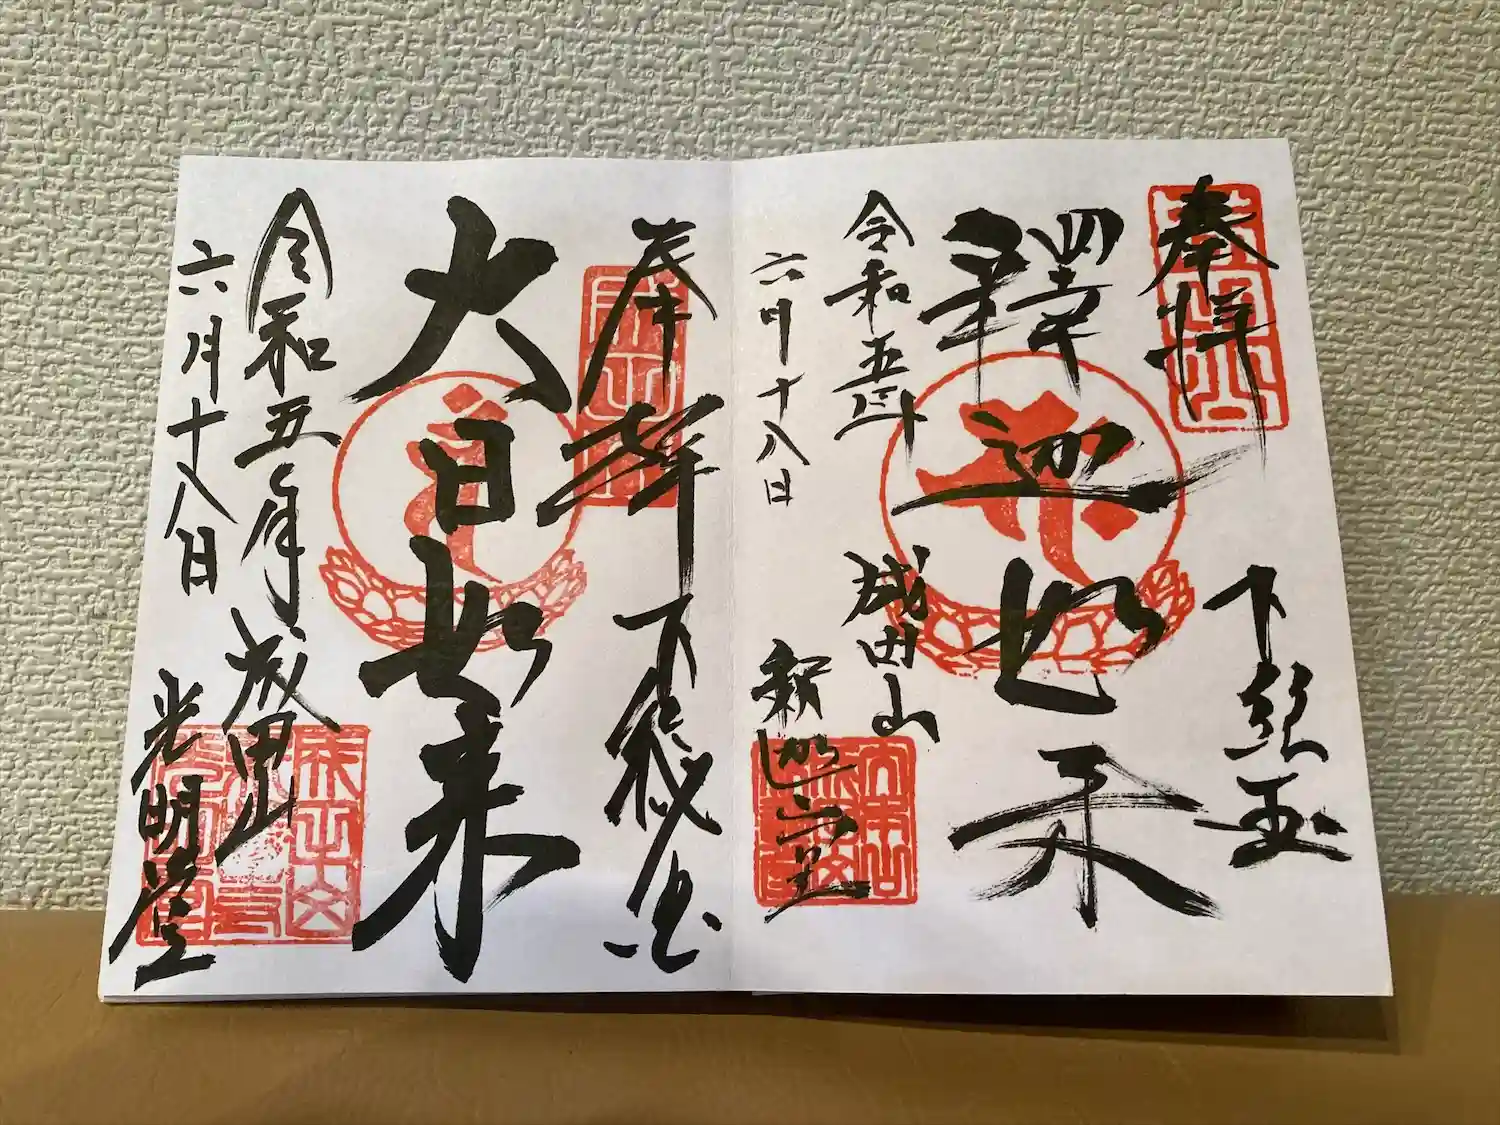 奉拝
下総玉
釋迦如来
令和五年
六月十八日
成田山
釈迦堂
奉拝
下総
大日如来
令和五年
六月十八日
成田山
光明堂